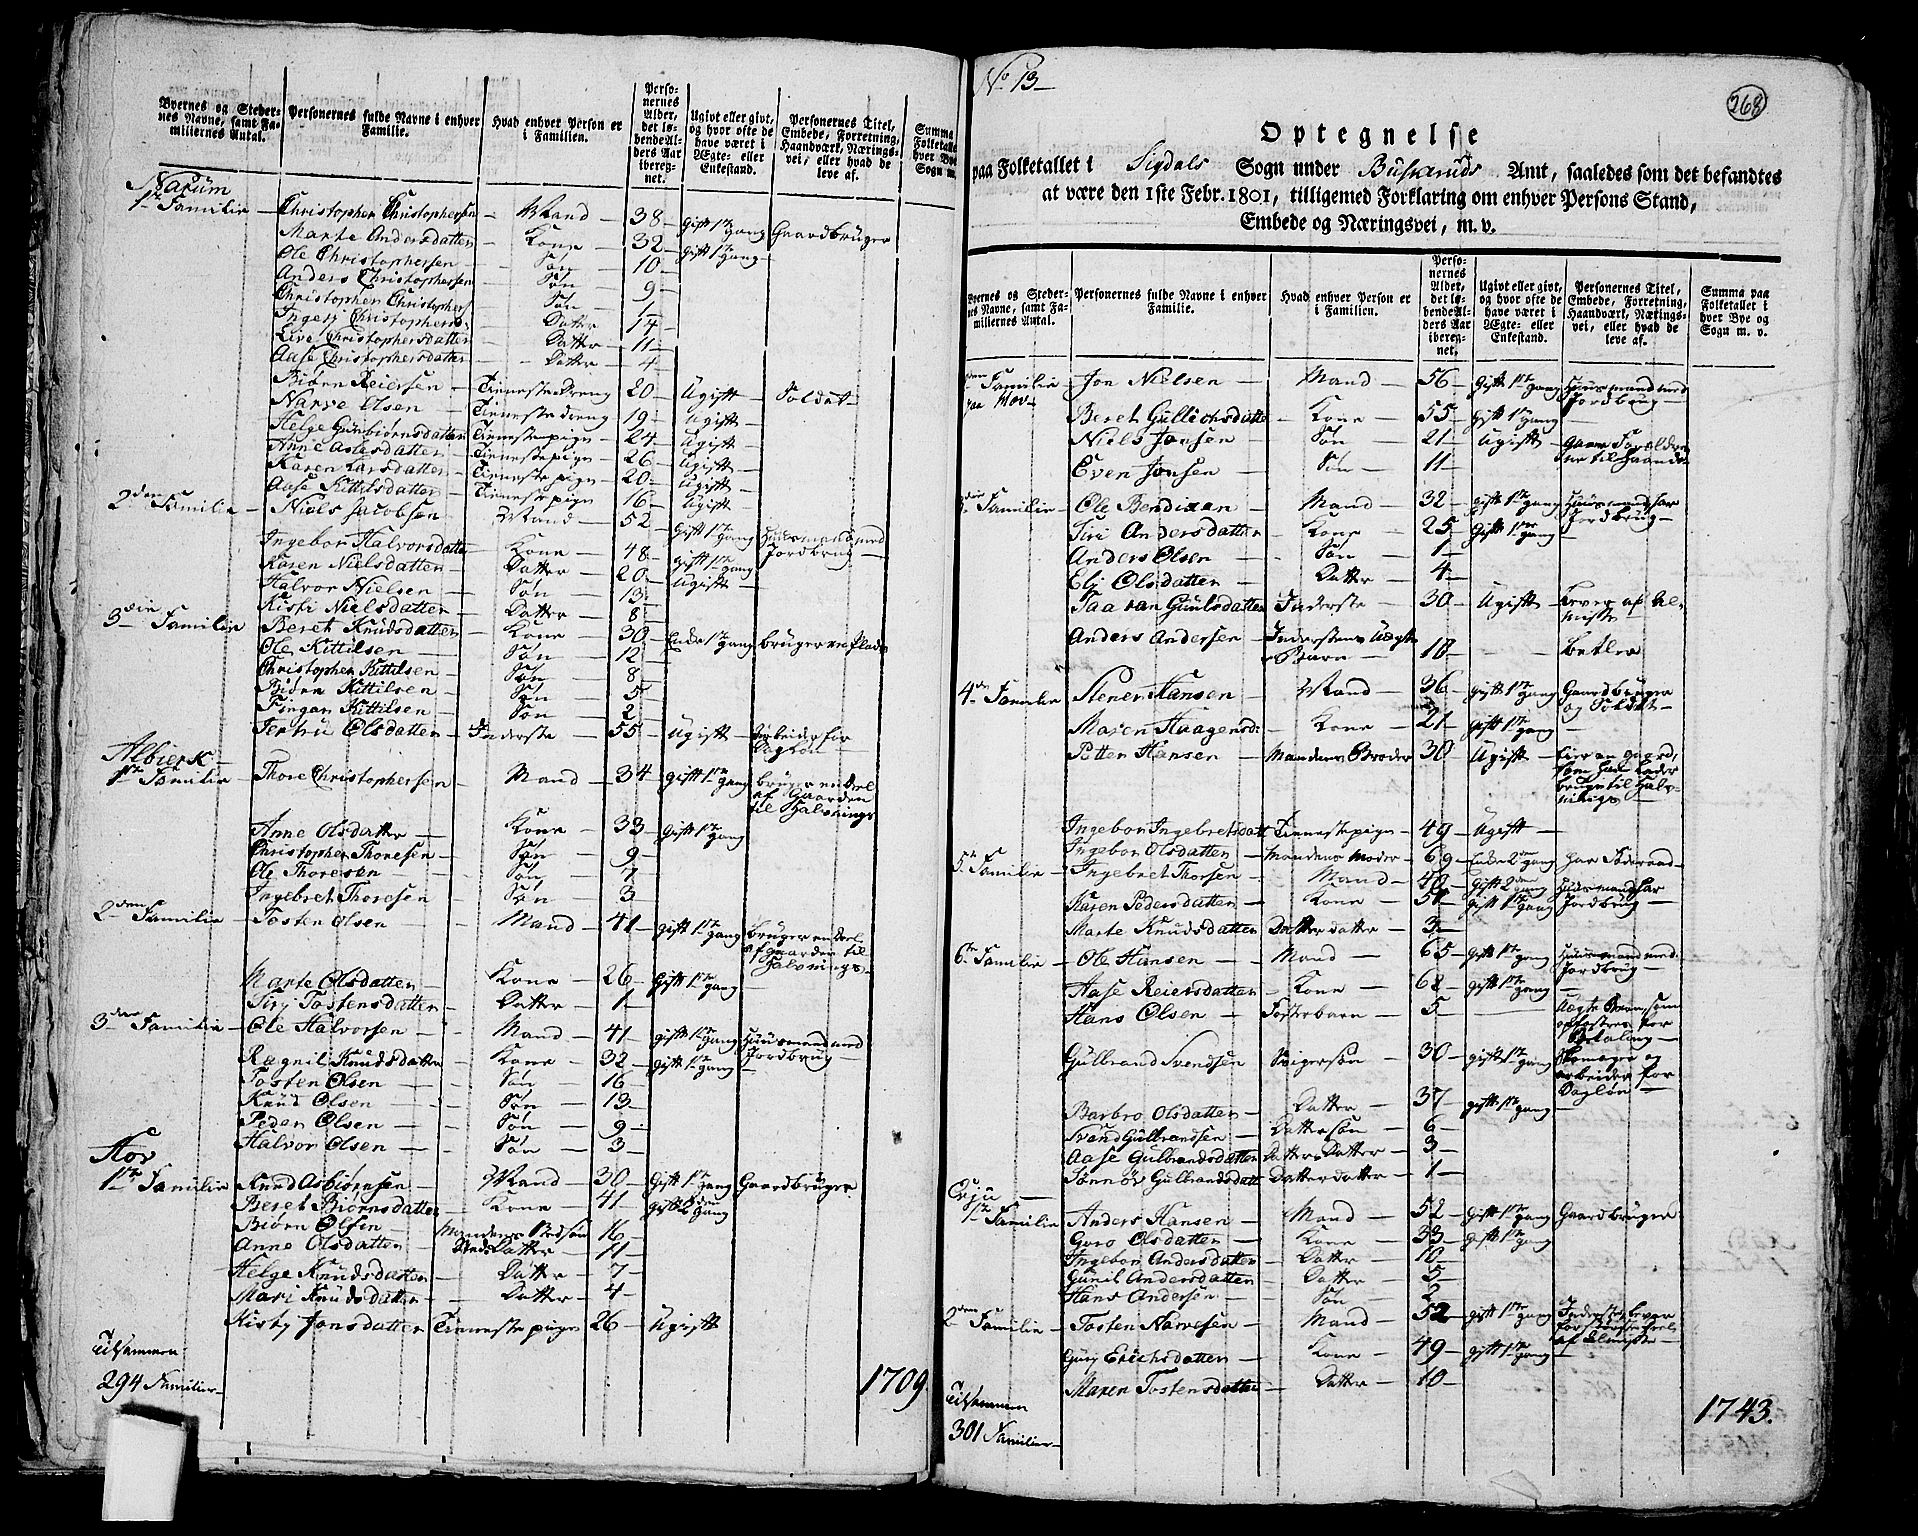 Byernes og Stedernes Navne, samt Familiernes Antal.
Personernes fulde Navne i enhver Familie.
Hvad enhver Person er i Familien.
Personernes Alder, det løbende Alders Aar iberegnet.
Ugivt eller givt, og hvor ofte de have været i Ægte- eller Enkestand.
Personernes Titel, Embede, Forretning, Haandværk, Næringsvei, eller hvad de leve af.
Summa Folketallet hver Bye Sogn m.
Narum
1te Familie - Christopher Christophersen - Mand - 38 - gift 1te gang Gaardbruger
Marte Andersdatter - Kone - 32 - gift 1te gang -
Ole Christophersen - Søn - 10 -
Anders Christophersen - Søn - 9 -
Christopher Christophers Søn - 1 -
Ingerj Christophers Datter - 14 -
Live Christophersdatter - Datter - 11 -
Aase Christophersdatter - Datter - 4 -
Biørn Reiersen - Tienestedreng 20 - Ugift - Soldat -
Narve Olsen - Tienestedreng - 19 - Ugift -
Helge Gunbiørnsdatter Tienestepige - 24 - Ugift -
Anne Aslesdatter - Tienestepige - 26 - Ugift -
Karen Larsdatter - Tienestepige - 20 - Ugift -
Aase Kittilsdatter - Tienestepige - 16 - Ugift -
2den Familie - Niels Jacobsen - Mand - 52 - gift 1te gang Huusmand med Jordbrug -
Ingebor Halvorsdatter - Kone - 48 - gift 1te gang
Karen Nielsdatter - Datter - 20 - Ugift -
Halvor Nielsen - Søn - 13 -
Kisti Nielsdatter - Datter - 8 -
3die Familie - Beret Knudsdatter - Kone - 30 - Enke 1te gang bruger en Plads
Ole Kittilsen - Søn - 12 -
Christopher Kittilsen - Søn - 8 -
Biørn Kittilsen - Søn - 5 -
Fingar Kittilsen - Søn - 2 -
Jertru Olsdatter - Inderste - 55 - Ugift - arbeider for Dagløn -
Albierk
1te Familie - Thore Christophersen - Mand - 34 - gift 1te gang bruger en deel af Gaarden til Halvnings
Anne Olsdatter - Kone - 33 - gift 1te gang
Christopher Thoresen - Søn - 9 -
Ole Thoresen - Søn - 7
Ingebret Thoresen - Søn - 3
2den Familie - Tosten Olsen - Mand - 41 - gift 1te gang bruger en deel af gaarden til Halvnings -
Marte Olsdatter - Kone - 26 - Gift 1te gang
Sirj Tostensdatter - Datter - 1 -
3die Familie - Ole Halvorsen - Mand - 41 - gift 1te gang Huusmand med Jordbrug -
Ragnil Knudsdatter - Kone - 32 - gift 1te gang
Tosten Olsen - Søn - 16 -
Knud Olsen - Søn - 13 -
Peder Olsen - Søn - 9 -
Halvor Olsen - Søn - 3 -
Hov
1te Familie Knud Asbiørnsen - Mand - 30 - Gift 1te gang Gaardbruger
Beret Biørnsdatter - Kone - 41 - gift 2den gang
Biørn Olsen - Mandens Stedsøn 16 -
Anne Olsdatter - Steds Datter - 11 -
Helge Knudsdatter - Datter - 7 -
Mari Knudsdatter - Datter - 4 -
Kisty Jonsdatter Tienestepige 26 - Ugift
Tilsammen
294 Familier -
1709.
No 13 -
268
Optegnelse
paa Folketallet i Sigdals Sogn under Buskeruds Amt, saaledes som det befandtes
at være den 1ste Febr. 1801, tilligemed Forklaring om enhver Persons Stand,
Embede og Næringsvei, m. v.
Byernes og Stedernes Navne, samt Familiernes Antal.
Personernes fulde Navne i enhver Familie.
Hvad enhver Person er i Familien.
Personernes Alder, det løbende Alders Aar iberegnet.
Ugivt eller givt, og hvor ofte de have været i Ægte- eller Enkestand.
Personernes Titel, Embede, Forretning, Haandværk, Næringsvei, eller hvad de leve af.
Summa paa Folketallet i hver Bye og Sogn m. v.
2den Familie - Jon Nielsen - Mand - 56 - Gift 1te gang Huusmand med Jordbrug -
paa Hov -
Beret Gullichsdatter Kone - 55 - gift 1te gang -
Niels Jonsen - Søn - 21 - Ugift - gaaer Forældrene til Haande
Even Jonsen - Søn - 11 -
3die Familie - Ole Bendixen - Mand - 32 - gift 1te gang Huusmand har Jordbrug -
Siri Andersdatter - Kone - 25 - gift 1te gang -
Anders Olsen - Søn - 1 -
Elj Olsdatter - Datter - 4 -
Taaran Gunlsdatter Inderste - 30 - Ugift - Lever af Almisse -
Anders Andersen - Inderstens Uægte Barn - 18 - betler
4de Familie - Stener Hansen - Mand - 36 - gift 1te gang Gaardbruger og Soldat -
Maren Haagensd: - Kone - 21 - gift 1te gang
Petter Hansen Mandens Broder 30 - Ugift -
Ingebor Ingebretsdatt Tienestepige - 49 - Ugift -
Ingebor Olsdatter - Mandens Moder - 69 - Enke 2den gang har Føderaad -
5te Familie - Ingebret Thorsen - Mand - 40 - Gift 2den gang Huusmand har Jordbrug -
Karen Pedersdatter - Kone - 51 - gift 1te gang
Marte Knudsdatter Datterdatter - 3 -
6te Familie - Ole Hansen - Mand - 65 - gift 1te gang Huusmand med Jordbrug -
Aase Reiersdatter - Kone - 68 - gift 1te gang -
Hans Olsen - Fosterbarn - 5 - Uægte Barn som opfostres for Betaling -
Gulbrand Svendsen - Svigersøn - 30 - gift 1te gang Skomager og arbeider for Dagløn -
Barbro Olsdatter - Datter - 37 - gift 1te gang -
Svend Gulbrandsen - Dattersøn - 6 -
Aase Gulbrandsdatter Datters Datter - 3 -
Sønnøv Gulbrandsdatt Datterdatter - 1 -
Eju -
1te Familie - Anders Hansen - Mand - 52 - gift 1te gang Gaardbruger
Goro Olsdatter - Kone - 33 - gift 1te gang
Ingebor Andersdatter - Datter - 10 -
Gunil Andersdatter - Datter - 5 -
Hans Andersen - Søn - 2 -
2den Familie - Tosten Narvesen - Mand - 52 - gift 1te gang Inderste lever
af Almisse -
Gurj Erichsdatter - Kone - 49 - gift 1te gang -
Maren Tostensdatter - Datter - 10 -
Tilsammen
301 Familier -
1743.